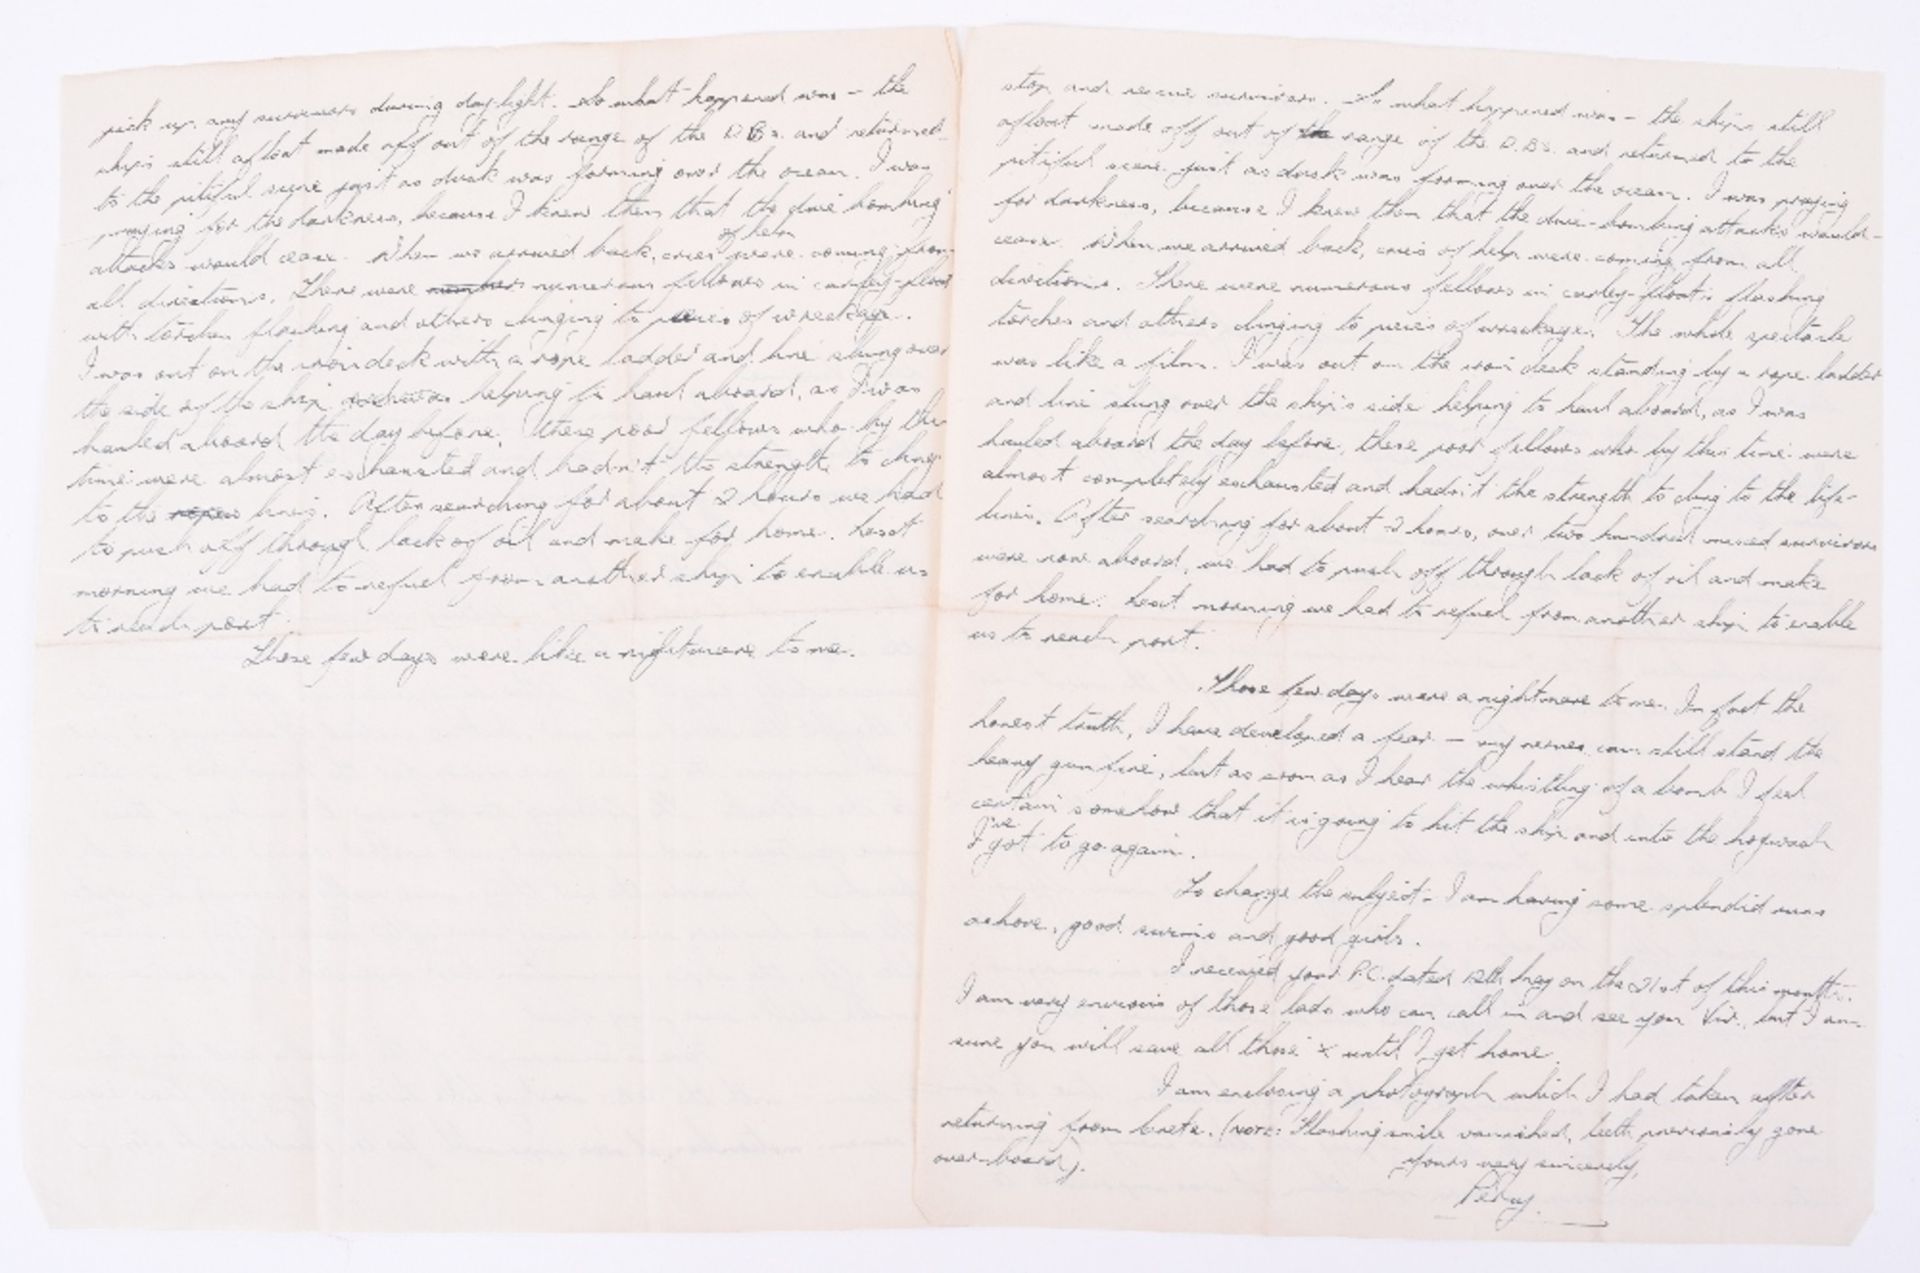 pick up any survivors during daylight. So what happened was – the
ships still afloat made off out of the range of the D.Bs. and returned
to the pitiful scene just as dusk was forming over the ocean. I was
praying for the darkness, because I knew then that the dive bombing
of help
attacks would cease. When we arrived back, cries were coming from
all directions. There were numbers numerous fellows in carley-floats
with torches flashing and others clinging to pieces of wreckage.
I was out on the iron deck with a rope ladder and line slung over
the side of the ship helping to haul aboard, as I was
hauled aboard the day before, these poor fellows who by this
time were almost exhausted and hadn't the strength to cling
to the ropes lines. After searching for about 2 hours we had
to push off through lack of oil and make for home. Last
morning we had to refuel from another ship to enable us
to reach port.
Those few days were like a nightmare to me.
stop and rescue survivors. So what happened was – the ships still
afloat made off out of the range of the D.BS. and returned to the
pitiful scene just as dusk was forming over the ocean. I was praying
for darkness, because I knew then that the dive-bombing attacks would
cease. When we arrived back, cries of help were coming from all
directions. There were numerous fellows in carley-floats flashing
torches and others clinging to pieces of wreckage. The whole spectacle
was like a film. I was out on the iron deck standing by a rope ladder
and line slung over the ship's side helping to haul aboard, as I was
hauled aboard the day before, these poor fellows who by this time were
almost completely exhausted and hadn't the strength to cling to the life-
lines. After searching for about 2 hours, over two hundred survivors
were now aboard, we had to push off through lack of oil and make
for home. Last morning we had to refuel from another ship to enable
us to reach port.
Those few days were a nightmare to me. In fact the
honest truth, I have developed a fear – my nerves can still stand the
heavy gun fire, but as soon as I hear the whistling of a bomb I feel
certain somehow that it is going to hit the ship and into the hogwash
I've got to go again.
To change the subject – I am having some splendid runs
ashore, good swims and good girls.
I received your P.C. dated 12th May on the 21st of this month.
I am very envious of those lads who can call in and see you Viv., but I am
sure you will save all those x until I get home.
I am enclosing a photograph which I had taken after
returning from Crete. (NOTE: Flashing smile vanished, teeth previously gone
over-board).
Yours very sincerely,
Percy.